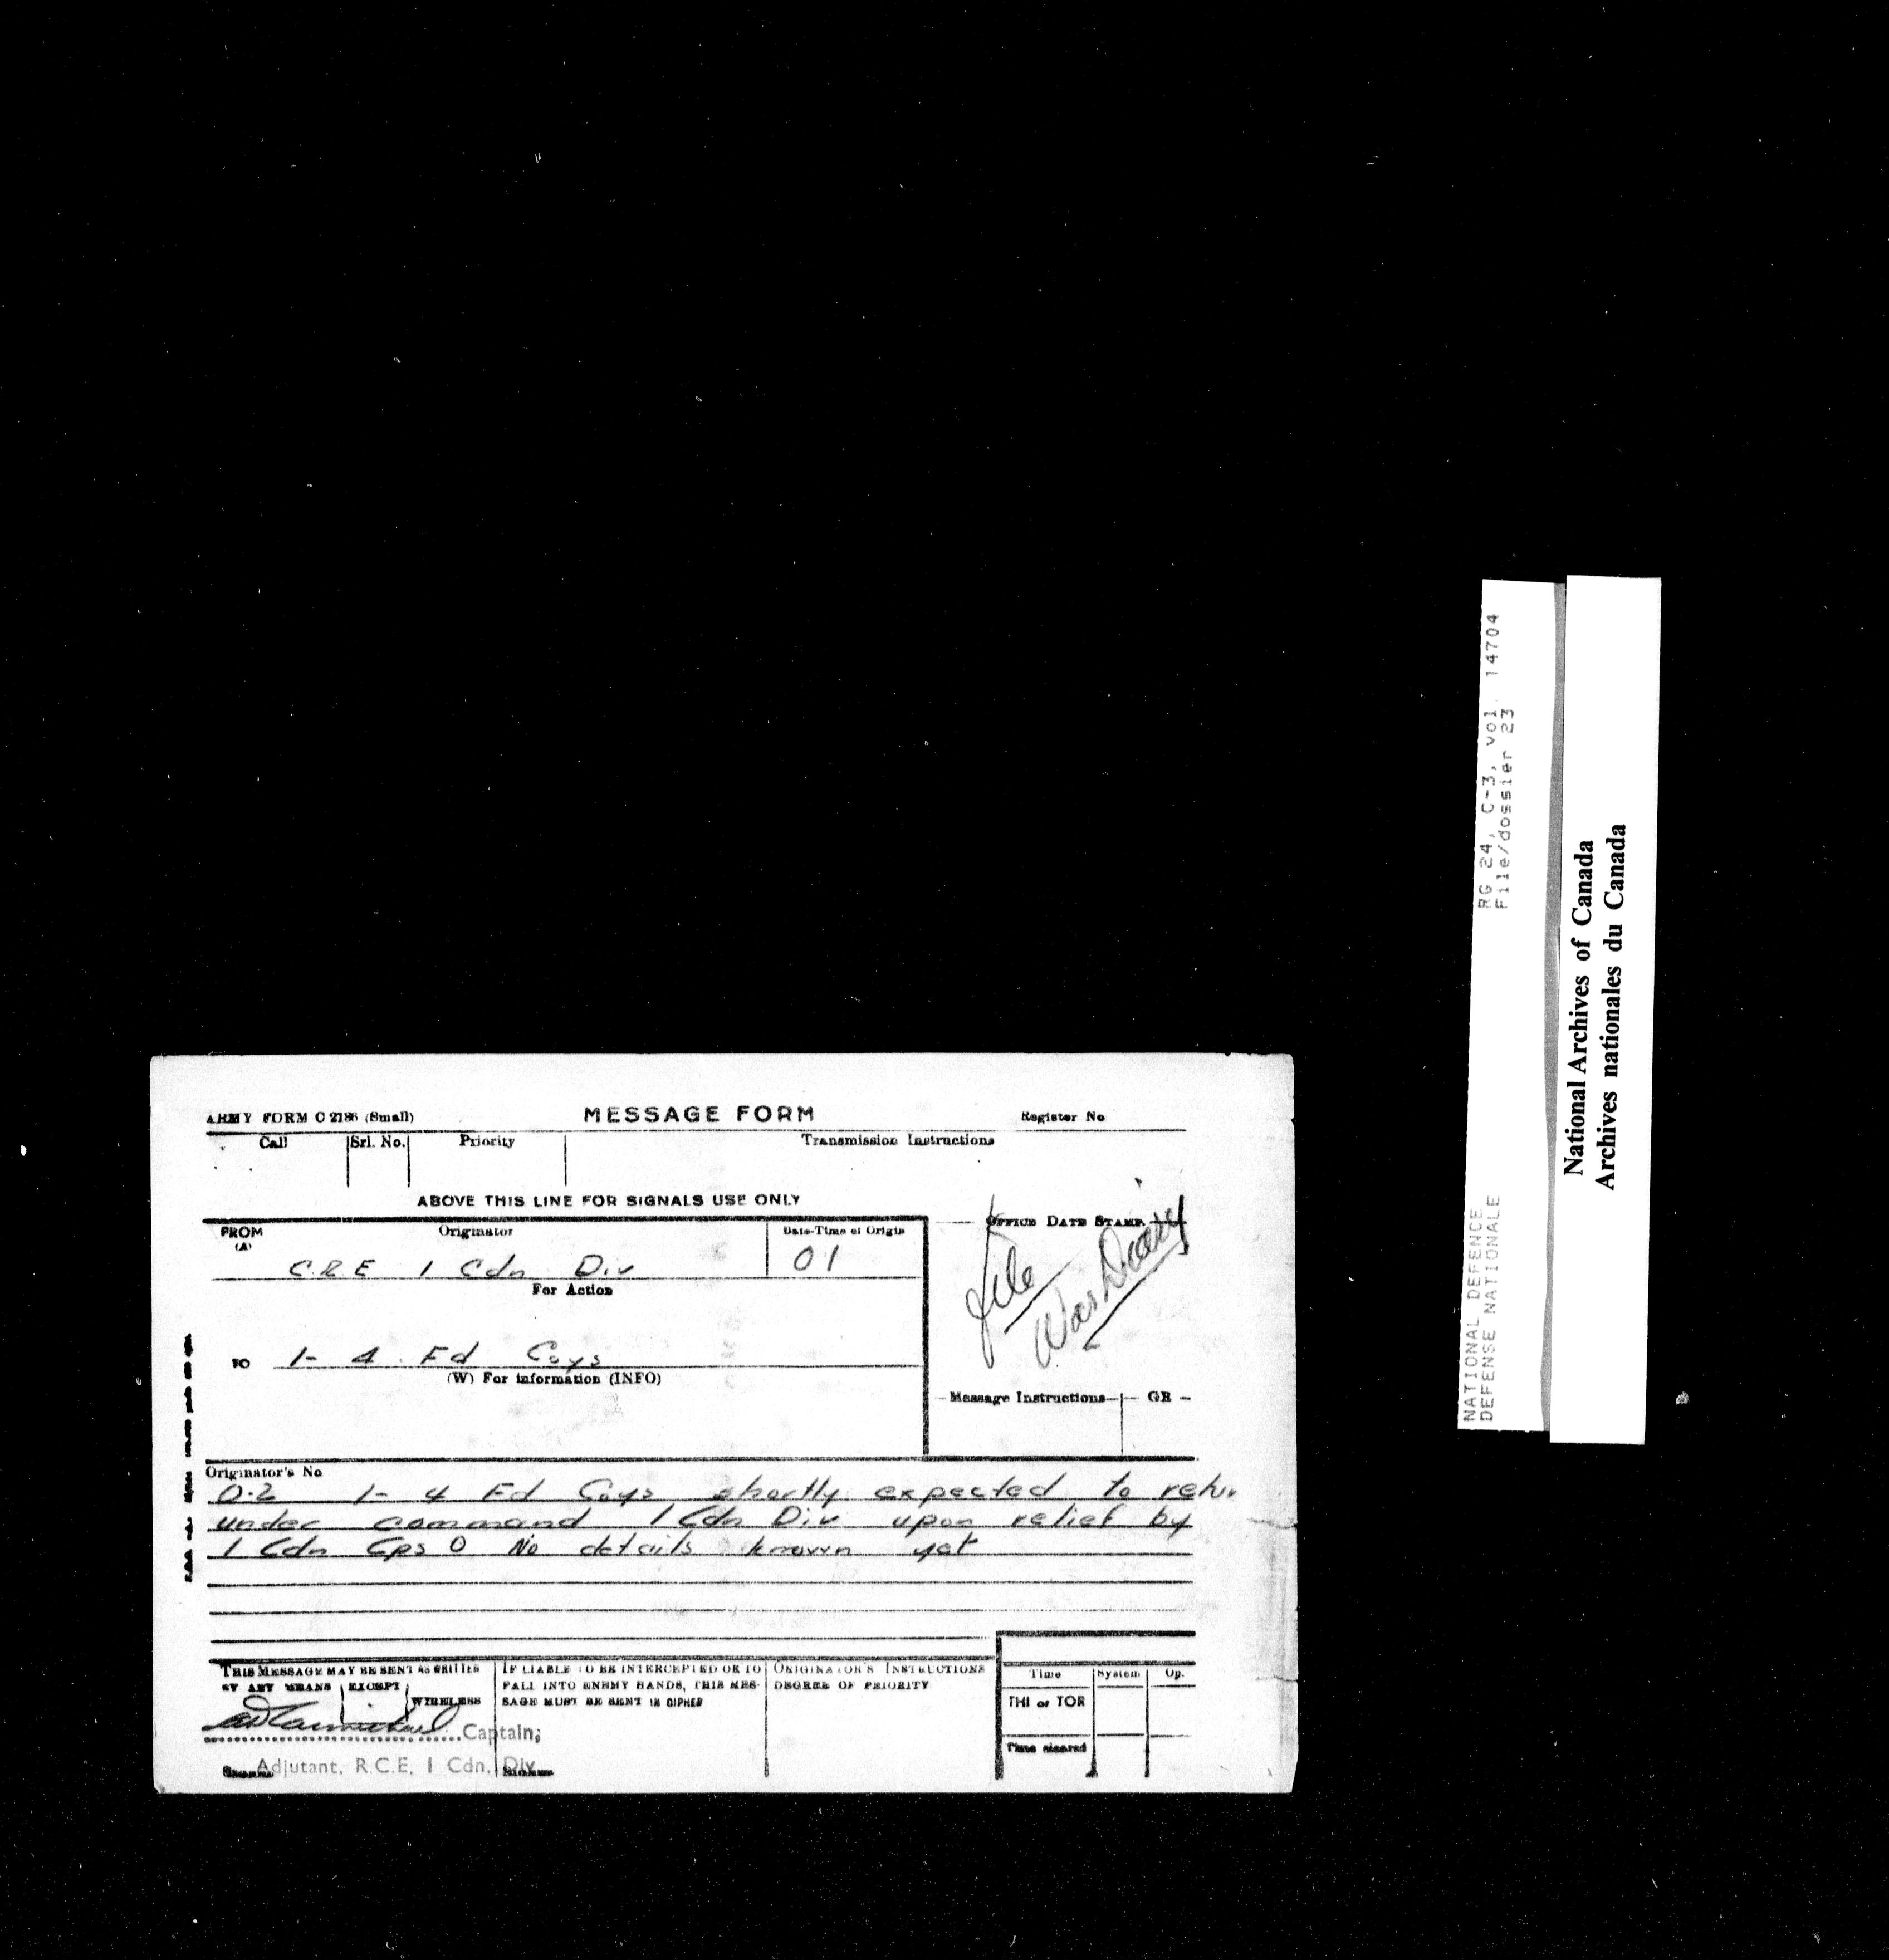 ARMY FORM C 2136 (Small) MESSAGE FORM Register No
Call Srl. No. Priority Transmission Instructions
ABOVE THIS LINE FOR SIGNALS USE ONLY
FROM (A) Originator Date-Time of Origin OFFICE DATE STAMP
C.R.E 1 Cdn Div 01
For Action
File
War Diary
TO 1- 4 Fd Coys
(W) For information (INFO)
Message Instructions GR
Originator's No
O-2 1- 4 Fd Coys shortly expected to retur
under command 1 Cdn Div upon relief by
1 Cdn Cps O No details known yet
THIS MESSAGE MAY BE SENT AS WRITTEN BY ANY MEANS EXCEPT WIRELESS
IF LIABLE TO BE INTERCEPTED OR TO FALL INTO ENEMY HANDS, THIS MESSAGE MUST BE SENT IN CIPHER
ORIGINATOR'S INSTRUCTIONS
DEGREE OF PRIORITY
Time System Op.
THI or TOR
Time cleared
Captain;
Adjutant, R.C.E, 1 Cdn. Div
RG 24, C-3, vol. 14704
File/dossier 23
NATIONAL DEFENCE
DEFENSE NATIONALE
National Archives of Canada
Archives nationales du Canada